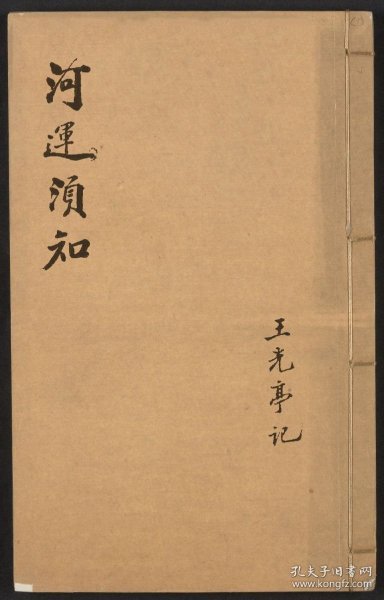 河運須知
王光亭记
孔夫子旧书网
www.kongfz.com